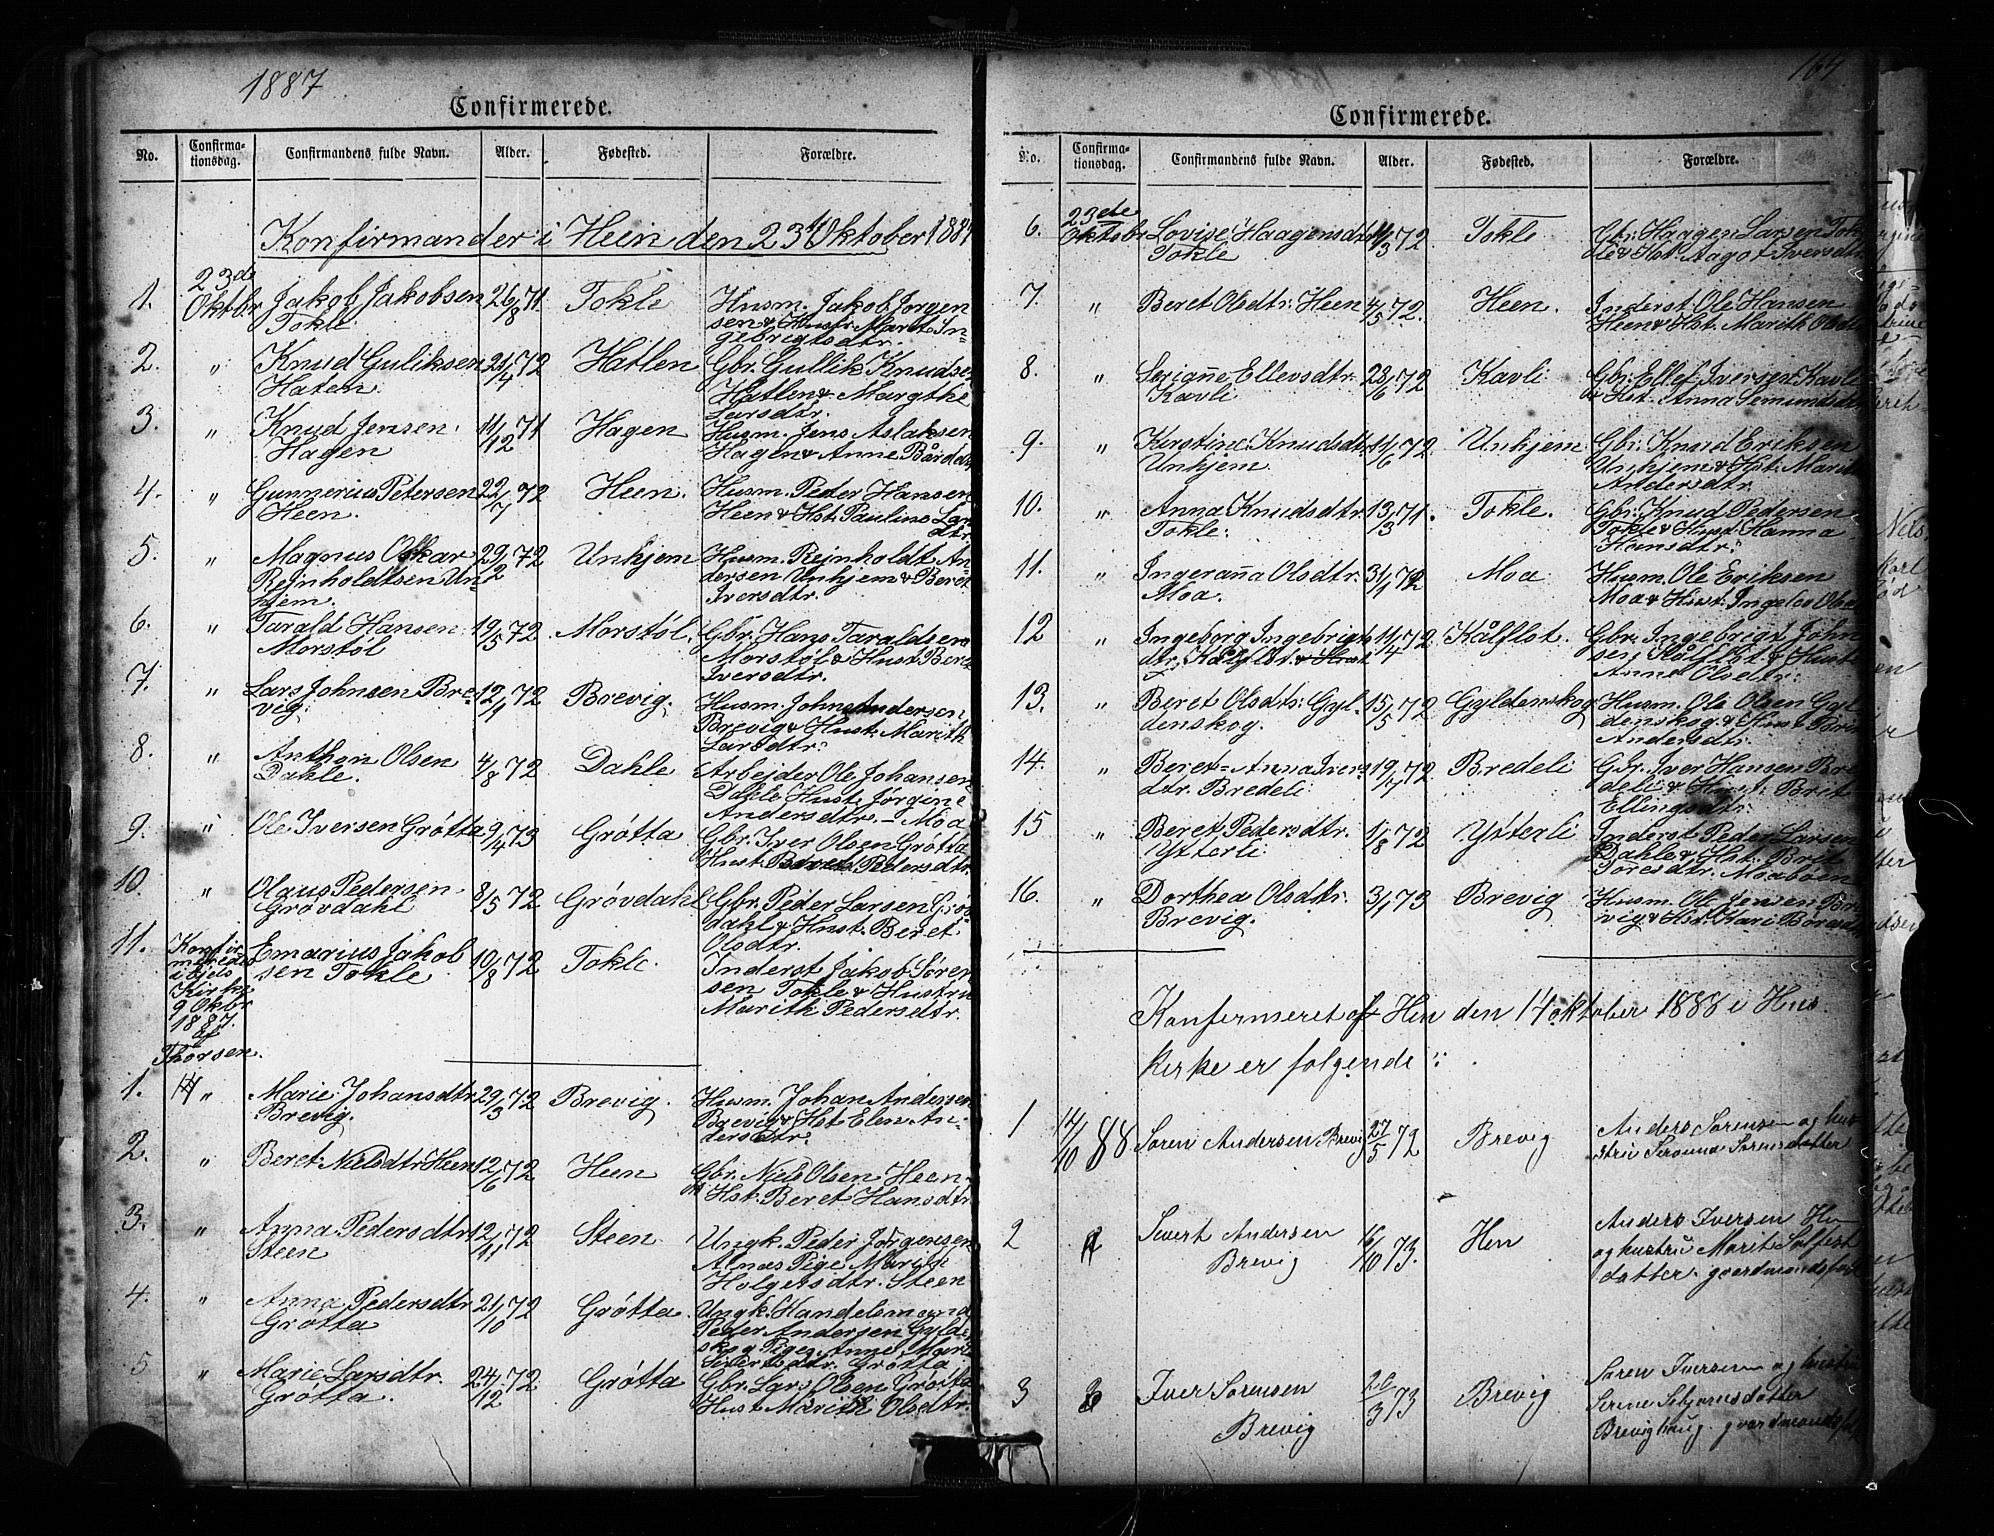 1887
Confirmerede.
No.
Confirma-
tionsdag.
Confirmandens fulde Navn.
Alder.
Fødested.
Forældre.
Konfirmander i Heen den 23d Oktober 1887
1.
23de
Oktbr
Jakob Jakobsen
Tokle
26/8 71
Tokle
Husm. Jakob Jørgen
sen & Hustr. Marit In-
gebrigtsdtr.
2.
"
Knud Guliksen
Hatlen
21/4 72
Hatlen
Gbr. Gullik Knudsen
Hatlen & Margthe
Larsdtr.
3.
"
Knud Jensen
Hagen
11/12 71
Hagen
Husm. Jens Aslaksen
Hagen & Anne Bårdsd
4.
"
Gunnerius Petersen
Heen.
22/7 72
Heen.
Husm. Peder Hansen
Heen & Hst. Pauline Lar
dtr.
5.
"
Magnus Oskar
Reinholdtsen Un
hjem.
29/2 72
Unhjem
Husm. Reinholdt An-
dersen Unhjem & Beret
Iversdtr.
6.
"
Tarald Hansen
Morstøl
19/5 72
Morstøl.
Gbr. Hans Taraldsen
Morstøl & Hust. Beret
Iversdtr.
7.
"
Lars Johnsen Bre-
vig.
12/1 72
Brevig.
Husm. John Andersen
Brevig & Hust. Marith
Larsdtr:
8.
"
Anthon Olsen
Dahle.
4/8 72
Dahle
Arbejder Ole Johansen
Dahle Hust. Jørgine
Andersdtr. - Moa
9.
"
Ole Iversen Grøtta
9/4 73
Grøtta
Gbr. Iver Olsen Grøtta
Hust. Beret Pedersdtr.
10.
"
Olaus Pedersen
Grøvdahl
8/5 72
Grøvdahl
Gbr. Peder Larsen Grøv
dahl & Hust. Beret
Olsdtr.
11.
Konfir
i Kirke
9 Okbr
1887.
af
Thorsen.
Emarius Jakob
sen Tokle
10/8 72
Tokle.
Inderst Jakob Søren
sen Tokle & Hustru
Marith Pedersdtr.
1.
"
Marie Johansdtr
Brevig.
29/3 72
Brevig.
Husm. Johan Andersen
Brevig & Hst Elen An-
dersdtr.
2.
"
Beret Nielsdtr Heen
12/6 72
Heen
Gbr. Niels Olsen Heen
Hst. Beret Hansdtr
3.
"
Anna Pedersdtr
Steen
12/11 72
Steen
Ungk. Peder Jørgensen
Alnæs Pige Marith
Holgersdtr. Steen
4.
"
Anna Pedersdtr
Grøtta
21/10 72
Grøtta
Ungk. Handelsmand
Peder Andersen Gylde
skog Pige Anne
Sivertsdtr. Grøtta
5
"
Marie Larsdtr.
Grøtta.
24/12 72
Grøtta
Gbr. Lars Olsen Grøtta
Hust. Marith Olsdtr.
164
Confirmerede.
No.
Confirma-
tionsdag.
Confirmandens fulde Navn.
Alder.
Fødested.
Forældre.
6.
23de
Oktobr
Lovise Haagensdtr
Tokle
/3 72
Tokle
Gbr. Haagen Larsen Tok
le & Hst. Aagot Iversdtr.
7.
"
Beret Olsdtr: Heen
4/5 72.
Heen.
Inderst Ole Hansen
Heen & Hst. Marith Olsdt
8.
"
Serianne Ellevsdtr.
Kavli
28/6 72
Kavli
Gbr. Ellef Iversen Kavli
& Hst. Anna Semundsdt
9.
"
Kirstine Knudsdtr
Unhjem.
11/6 72.
Unhjem
Gbr. Knud Eriksen
Unhjem & Hst. Marit
Andersdtr.
10.
"
Anna Knudsdtr.
Tokle.
13/3 71.
Tokle.
Gbr. Knud Pedersen
Tokle & Hust. Hanna
Hansdtr.
11.
"
Ingeranna Olsdtr.
Moa.
31/1 72
Moa
Husm. Ole Eriksen
Moa & Hust. Ingelev Ols
12
"
Ingeborg Ingebrigts
dtr. Kålflot. & Hust
11/4 72.
Kålflot.
Gbr. Ingebrigt John
sen Kålflot & Hust
Anne Olsdtr:
13.
"
Beret Olsdtr: Gyl-
denskog.
15/5 72
Gyldenskog
Husm. Ole Olsen Gyl
denskog & Hust Brit
Andersdtr.
14.
"
Beret-Anna Ivers
dtr. Bredeli
19/ 72.
Bredeli
Gbr. Iver Hansen Bre
deli & Hust: Brit
Ellingsdtr.
15
"
Beret Pedersdtr.
Ytterli
1/8 72
Ytterli
Inderst Peder Larsen
Dahle & Hst. Brit
Toresdtr. Moaboen
16.
"
Dorthea Olsdtr:
Brevig.
3/1 73
Brevig
Husm. Ole Jensen Bre
vig & Hst. Kari
Konfermeret af Hen den 14 oktober 1888 i Hus
kirke er følgende :
1
14/10 88
Søren Andersen Brevig
27/5 72
Brevig
Anders Sørensen og hus
tru Serianna Sørensdatter
2
Sivert Andersen
Brevig
16/10 73.
Hen
Anders Iversen Hen
og hustru Marit Solfest
datter. gvardmandsfolk
3
Iver Sørensen
Brevig
/3 73
Brevig
Søren Iversen og hustru
datter
Brevighaug gvardmandsfolk